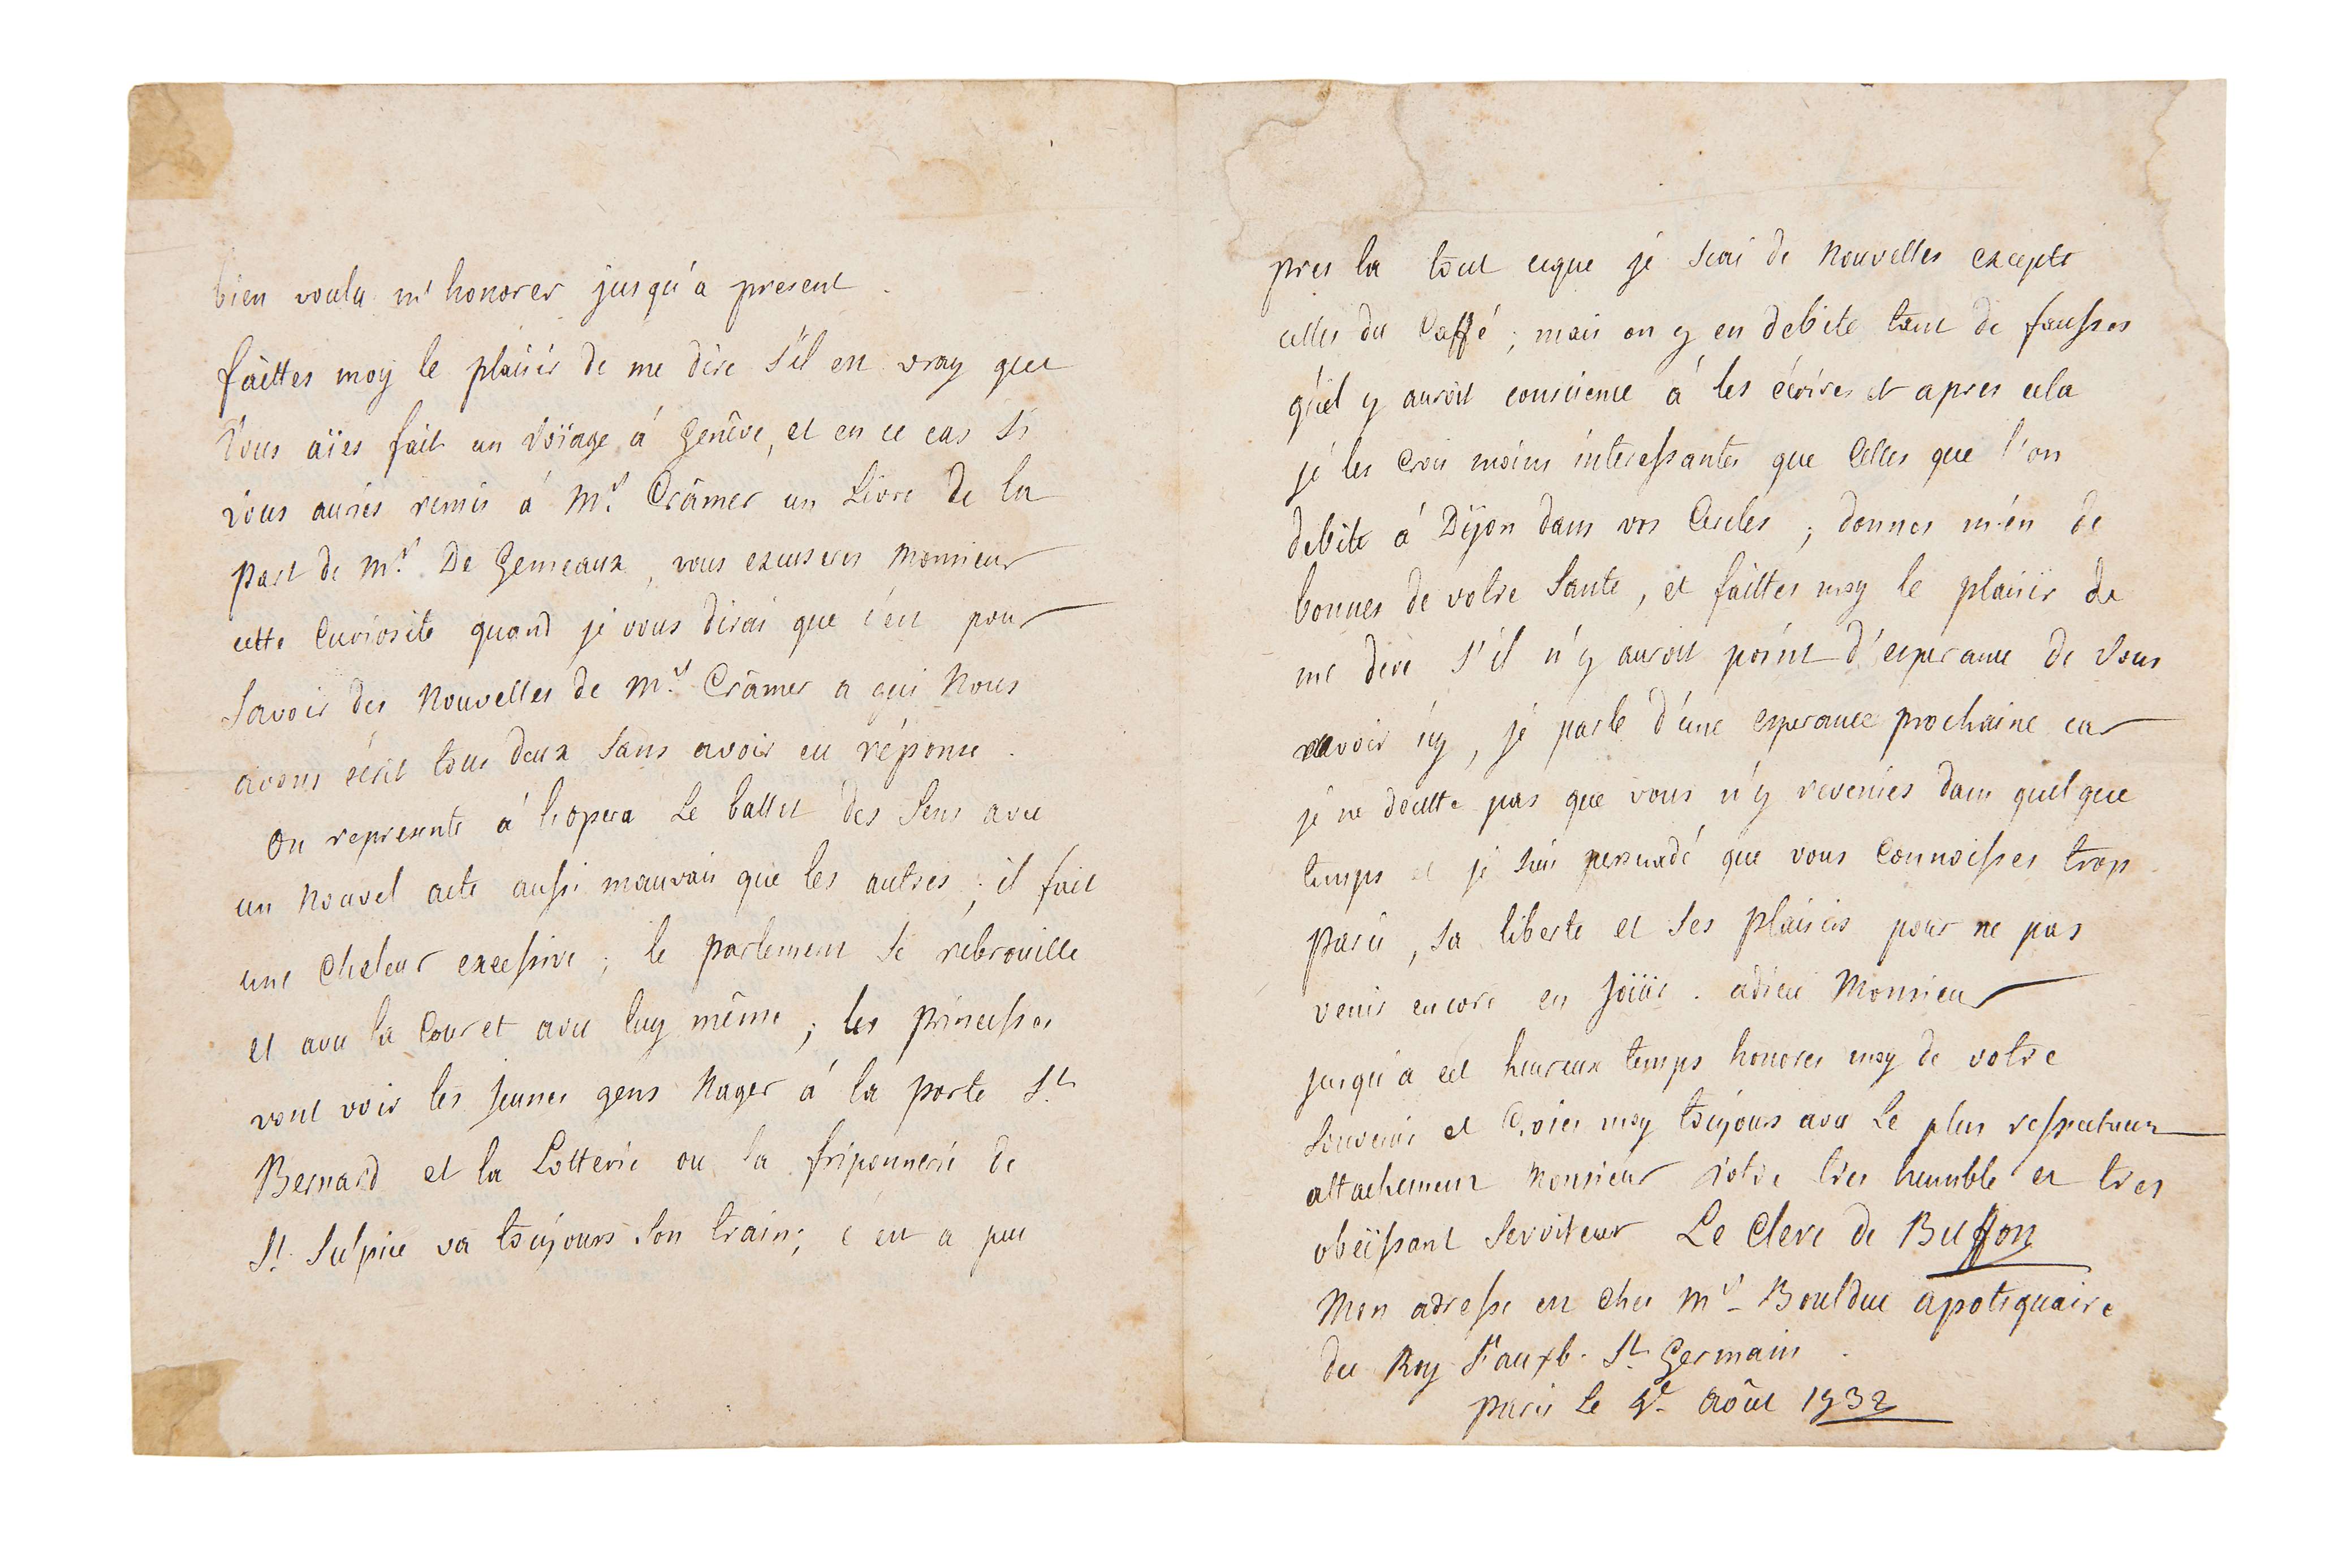 bien voulu m'honorer jusqu'a present.
faittes moy le plaisir de me dire s'il est vray que
Vous aïes fait un voïage à Genêve, et en ce cas si
vous aurés remis à Mr. Crâmer un Livre de la
part de Mr. De Gemeaux, vous excuserés Monsieur
cette Curiosité quand je vous dirai que c'est pour
Savoir des Nouvelles de Mr. Crâmer a qui Nous
avons écrit tous deux Sans avoir eu réponse.
On represente à l'opera Le ballet des Sens avec
un Nouvel acte aussi mauvais que les autres; il fait
une Chaleur excessive; le parlement se rebrouille
et avec la Cour et avec luy même; les princesses
vont voir les jeunes gens Nager à la porte St.
Bernard et la Lotterie ou la friponnerie de
St. Sulpice va toujours Son train; c'est a peu
pres la tout ceque je scai de Nouvelles excepté
celles du Caffé; mais on y en debite tant de fausses
qu'il y auroit conscience à les écrires et apres cela
je les Crois moins interessantes que Celles que l'on
debite à Dijon dans vos Cercles; donnes m'en de
bonnes de votre Santé, et faittes moy le plaisir de
me dire s'il n'y auroit point d'esperance de Vous
revoir icy, je parle d'une esperance prochaine car
je ne doutte pas que vous n'y reveniés dans quelque
temps et je Suis persuadé que vous Connoisses trop
Paris, Sa liberté et Ses plaisirs pour ne pas
venir encore en Joüir. adieu Monsieur
jusqu'a cet heureux temps honores moy de votre
Souvenir et Croies moy toujours avec Le plus respectueux
attachement Monsieur Votre tres humble et tres
obeissant Serviteur Le Clerc de Buffon
Mon adresse est chez Mr. Boulduc apotiquaire
du Roy Fauxb. St. Germain.
paris Le Août 1732